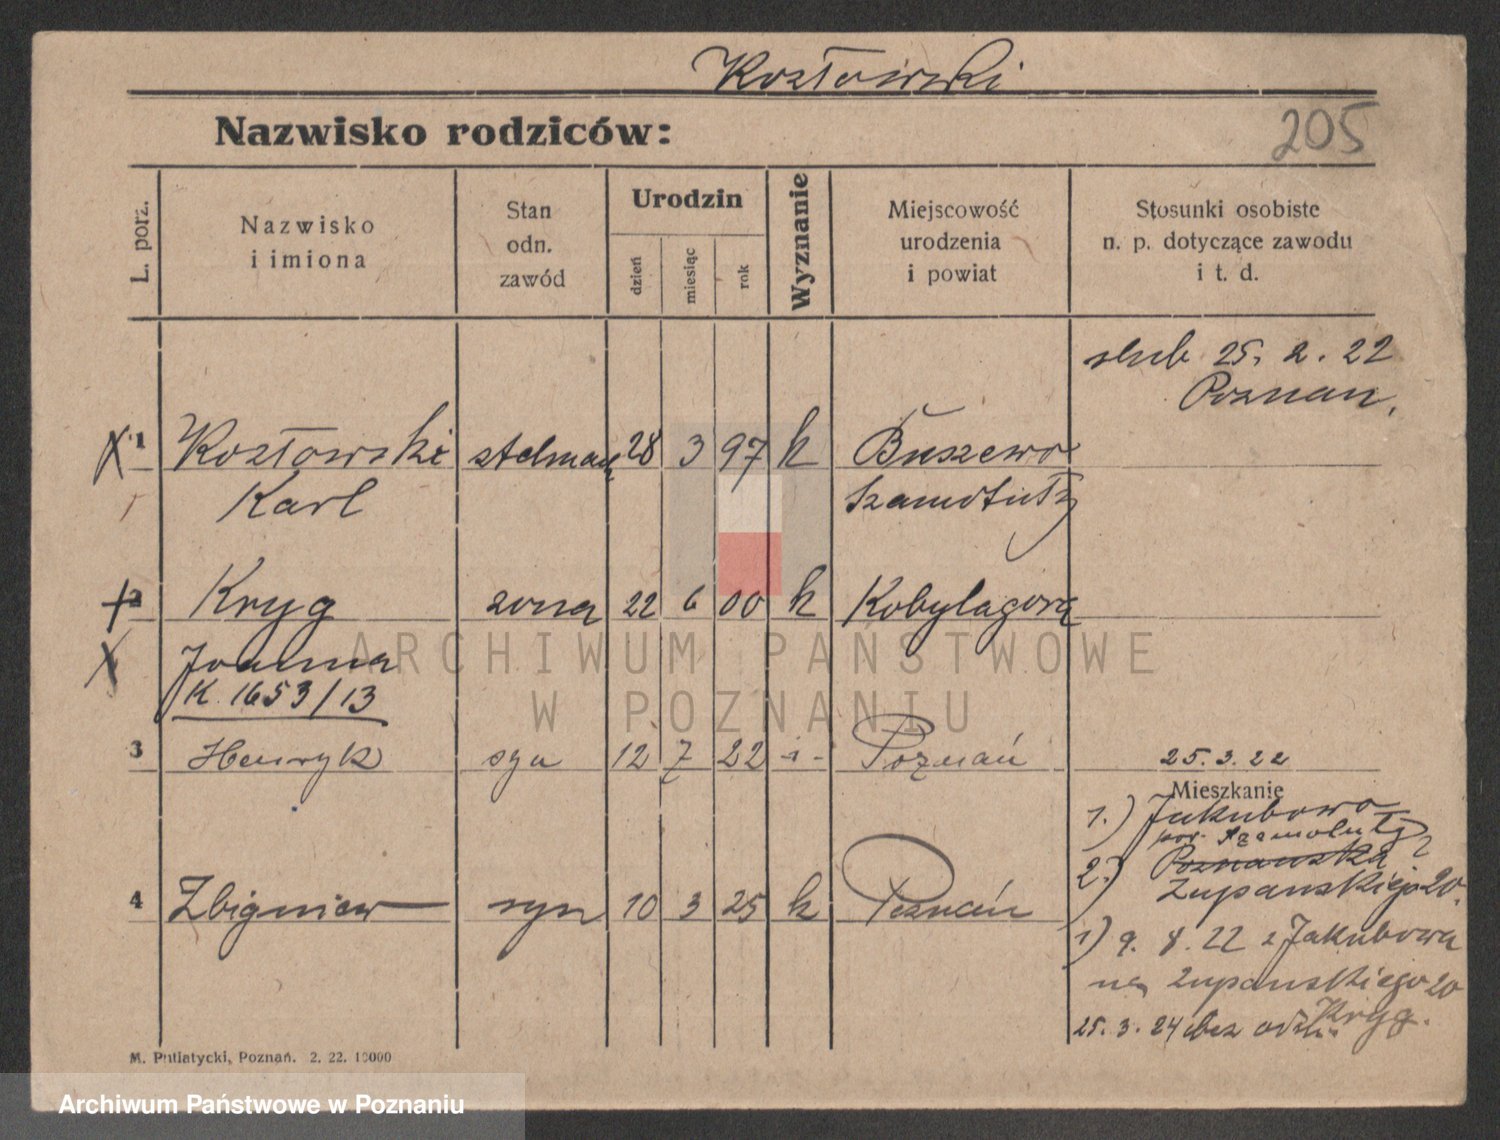 Kozłowski
Nazwisko rodziców:
205
L. porz.
Nazwisko
i imiona
Stan
odn.
zawód
Urodzin
dzień
miesiąc
rok
Wyznanie
Miejscowość
urodzenia
i powiat
Stosunki osobiste
n. p. dotyczące zawodu
i t. d.
slub 25. 2. 22
Poznan.
1 Kozłowski stelmach 28 3 97 k Buszewo
Karl Szamotuły
2 Kryg zona 22 6 00 k Kobylagora
Joanna
K. 1653/13
3 Henryk syn 12 7 22 Poznań 25. 3. 22
Mieszkanie
1.) Jakubowo
pow. Szamotuły
2.) Poznanska
Zupanskiego 20.
4 Zbigniew syn 10 3 25 k Poznań
1) 9. 8. 22 z Jakubowa
na Zupanskiego 20
Kryg.
25. 3. 24 bez
M. Putiatycki, Poznań. 2. 22. 10000
ARCHIWUM PAŃSTWOWE
W POZNANIU
Archiwum Państwowe w Poznaniu